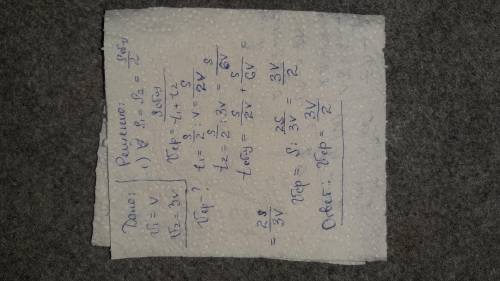 Дано:
V₁ = V
V₂ = 3V
Vср - ?
Решение:
1) ∀ S₁ = S₂ = Sобщ/2
Vср = Sобщ/(t₁ + t₂)
t₁ = S/2 : V = S/2V
t₂ = S/2 : 3V = S/6V
tобщ = S/2V + S/6V =
= 2S/3V
Vср = S : 2S/3V = 3V/2
Ответ: Vср = 3V/2